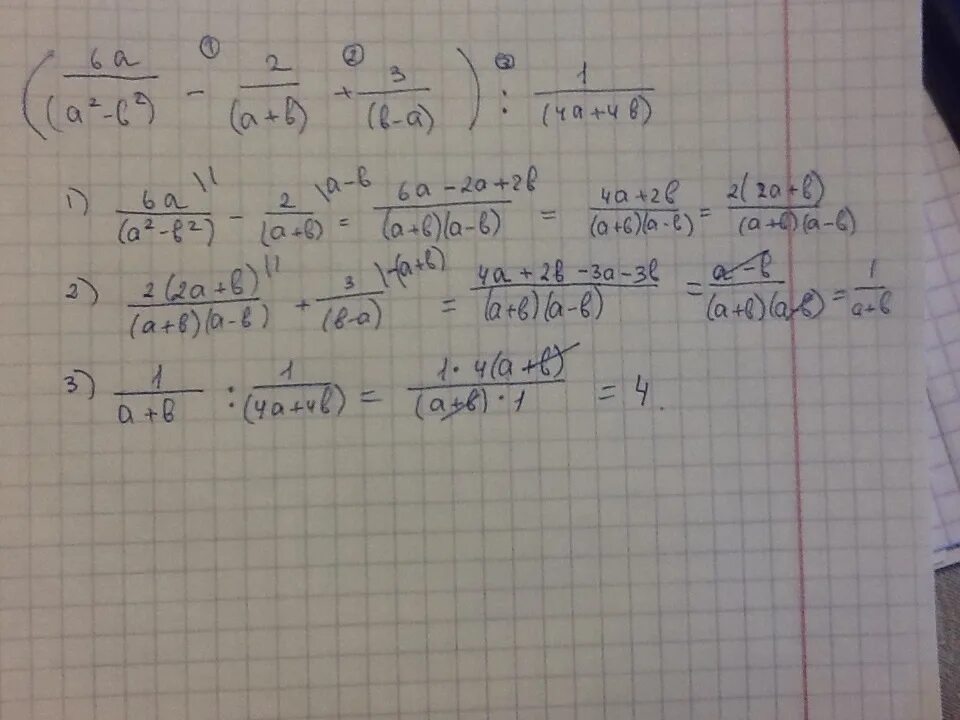 (6a/(a²-b²) ① - 2/(a+b) ② + 3/(b-a)) ③ : 1/(4a+4b)
1) 6a\\1/(a²-b²) - 2\a-b/(a+b) = (6a-2a+2b)/((a+b)(a-b)) = (4a+2b)/((a+b)(a-b)) = 2(2a+b)/((a+b)(a-b))
2) 2(2a+b)\\1/((a+b)(a-b)) + 3\-(a+b)/(b-a) = (4a+2b-3a-3b)/((a+b)(a-b)) = (a-b)/((a+b)(a-b)) = 1/(a+b)
3) 1/(a+b) : 1/(4a+4b) = (1·4(a+b))/((a+b)·1) = 4.